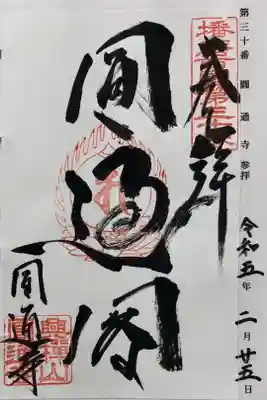 第三十番 圓通寺 参拝
奉拝
令和五年 二月 廿五日
圓通閣
圓通寺
興禅山